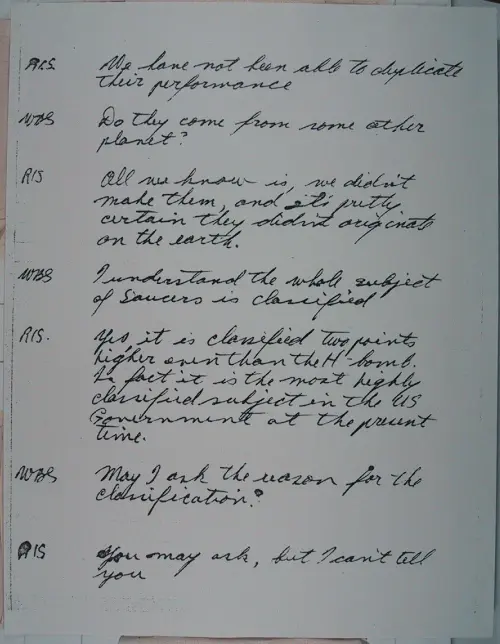 RIS We have not been able to duplicate
their performance
WBS Do they come from some other
planet?
RIS All we know is, we didn't
make them, and it's pretty
certain they didn't originate
on the earth.
WBS I understand the whole subject
of saucers is classified
RIS. Yes, it is classified two points
higher even than the H-bomb.
In fact it is the most highly
classified subject in the US
Government at the present
time.
WBS May I ask the reason for the
classification?
RIS You may ask, but I can't tell
you